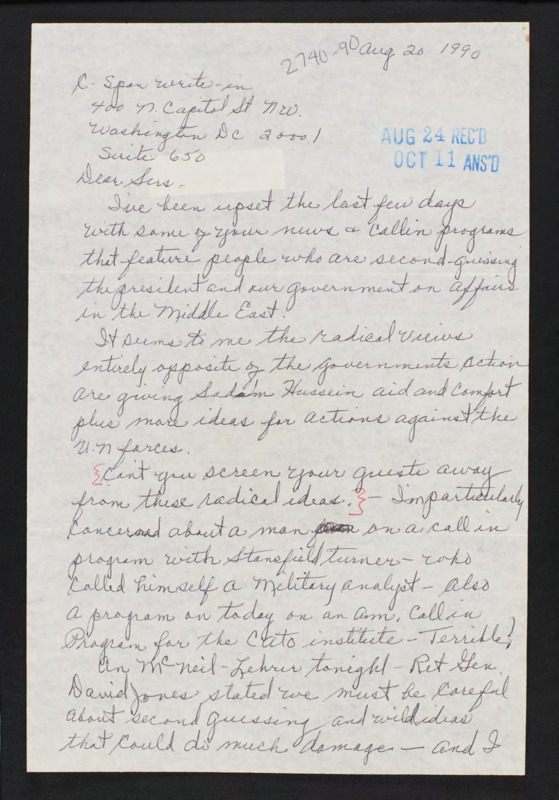 2740-90 Aug 20 1990
C-Span write-in
400 N. Capitol St NW.
Washington DC 20001
Suite 650
AUG 24 REC'D
OCT 11 ANS'D
Dear Sirs.
I've been upset the last few days
with some of your news & Callin programs
that feature people who are second-guessing
the president and our government on affairs
in the Middle East.
It seems to me the radical views
entirely opposite of the governments action
are giving Sadam Hussein aid and comfort
plus more ideas for actions against the
U.N forces.
{Can't you screen your guests away
from these radical ideas.} - Im particularly
concerned about a man on a call in
program with Stansfield Turner - who
called himself a Military analyst - also
a program on today on an a.m. Call in
Program for the Cato institute - Terrible!
On McNeil-Lehrer tonight - Ret Gen.
David Jones, stated we must be careful
about second guessing and wild ideas
that could do much damage - and I